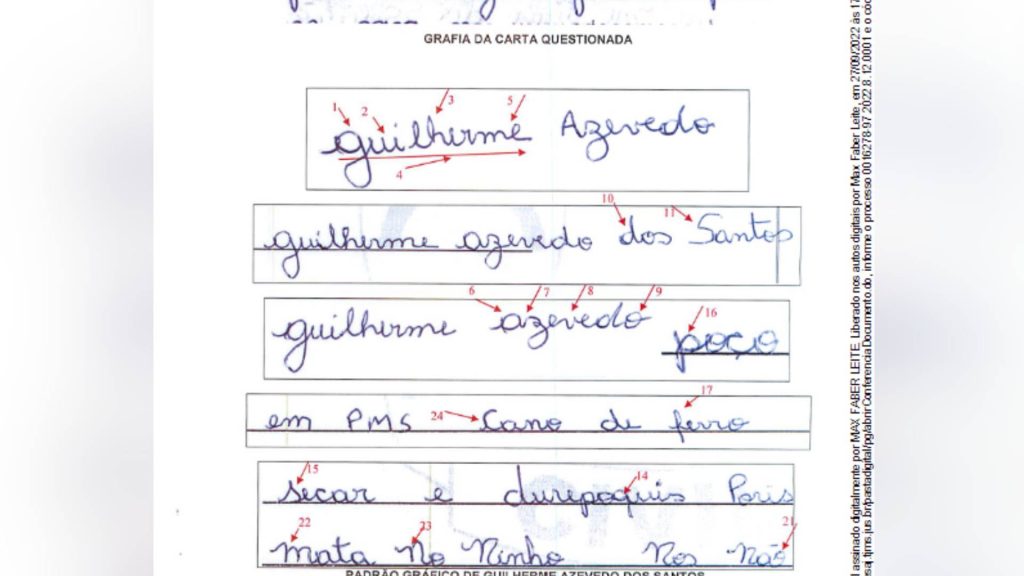 GRAFIA DA CARTA QUESTIONADA
1 2 3 5
guilherme Azevedo
4
10 11
guilherme azevedo dos Santos
6 7 8 9
guilherme azevedo
16
poço
17
em PMS 24 Cano de ferro
15 14
secar e durepoquis Paris
22 23 21
mata No Ninho Nos Não
PADRÃO GRÁFICO DE GUILHERME AZEVEDO DOS SANTOS
assinado digitalmente por MAX FABER LEITE. Liberado nos autos digitais por Max Faber Leite, em 27/09/2022 às 17
informe o processo 0016278-97.2022.8.12.0001 e o cód